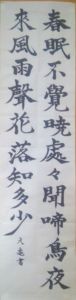 春眠不覺暁處々聞啼鳥夜
來風雨聲花落知多少
書